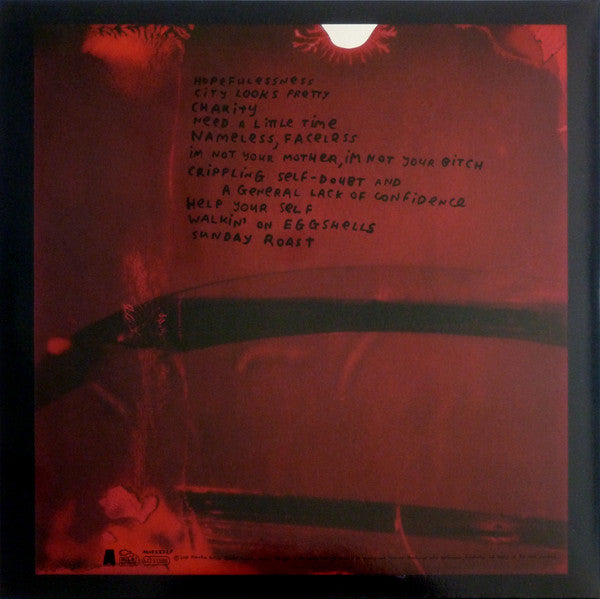 HOPEFULESSNESS
CITY LOOKS PRETTY
CHARITY
NEED A LITTLE TIME
NAMELESS, FACELESS
IM NOT YOUR MOTHER, IM NOT YOUR BITCH
CRIPPLING SELF-DOUBT AND
A GENERAL LACK OF CONFIDENCE
HELP YOUR SELF
WALKIN' ON EGGSHELLS
SUNDAY ROAST